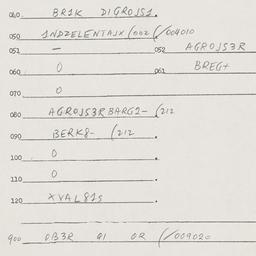 040 BR1K DIGROJS1.
050 1NDZELENTAJX (002 (/004010
051 — 052 AGROJS3R
060 0 061 BREG+
070 0
080 AGROJS3R BARG1- (212
090 BERK8- (212
100 0
110 0
120 XVAL81S
900 0B3R 01 0R (/009020